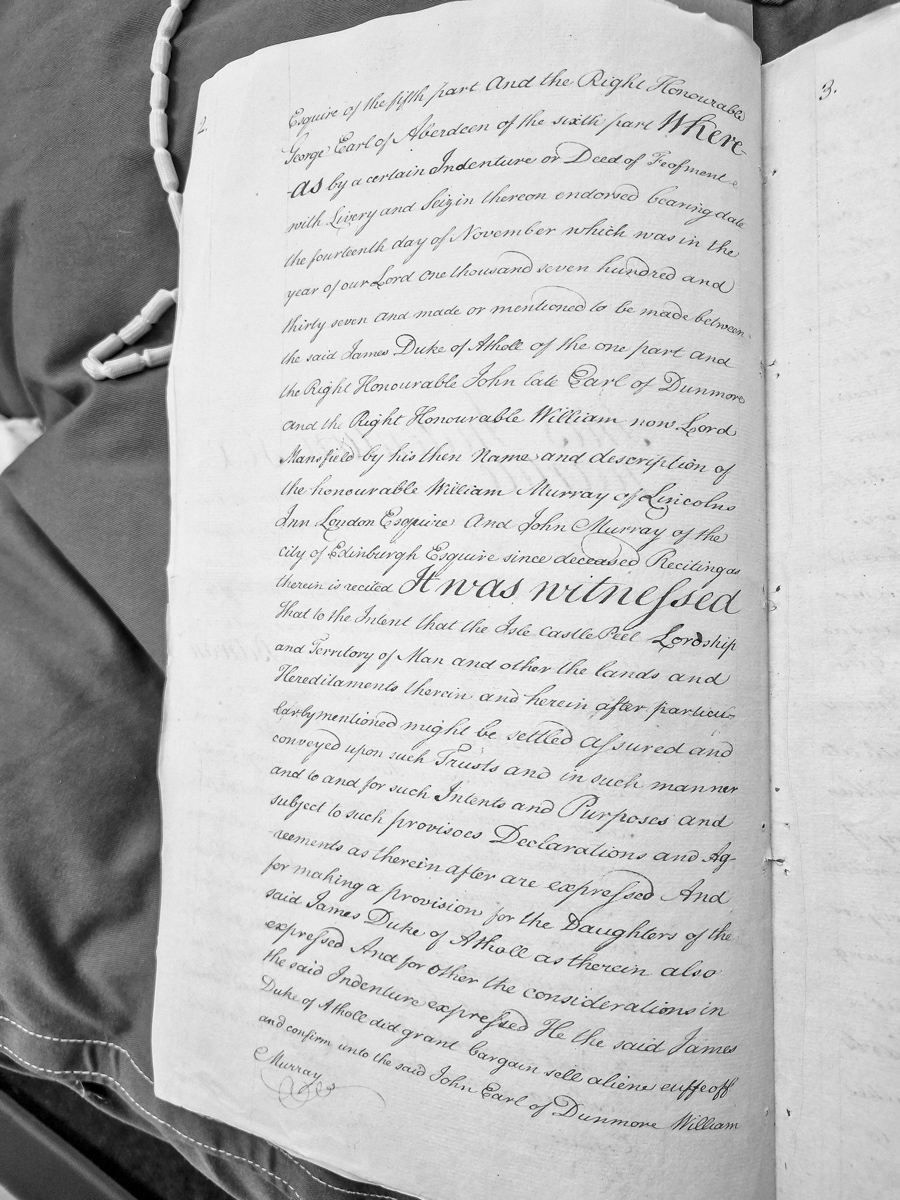 2.
Esquire of the fifth part And the Right Honourable
George Earl of Aberdeen of the sixth part Where-
-as by a certain Indenture or Deed of Feofment
with Livery and Seizin thereon endorsed bearing date
the fourteenth day of November which was in the
year of our Lord One thousand seven hundred and
thirty seven and made or mentioned to be made between
the said James Duke of Atholl of the one part and
the Right Honourable John late Earl of Dunmore
and the Right Honourable William now Lord
Mansfield by his then Name and description of
the honourable William Murray of Lincolns
Inn London Esquire And John Murray of the
city of Edinburgh Esquire since deceased Reciting as
therein is recited It was witneſsed
that to the Intent that the Isle Castle Peel Lordship
and Territory of Man and other the lands and
Hereditaments therein and herein after particu-
larly mentioned might be settled aſsured and
conveyed upon such Trusts and in such manner
and to and for such Intents and Purposes and
subject to such provisoes Declarations and Ag-
-reements as therein after are expreſsed And
for making a provision for the Daughters of the
said James Duke of Atholl as therein also
expreſsed And for other the considerations in
the said Indenture expreſsed He the said James
Duke of Atholl did grant bargain sell aliene enffeoff
and confirm unto the said John Earl of Dunmore William
Murray
3.